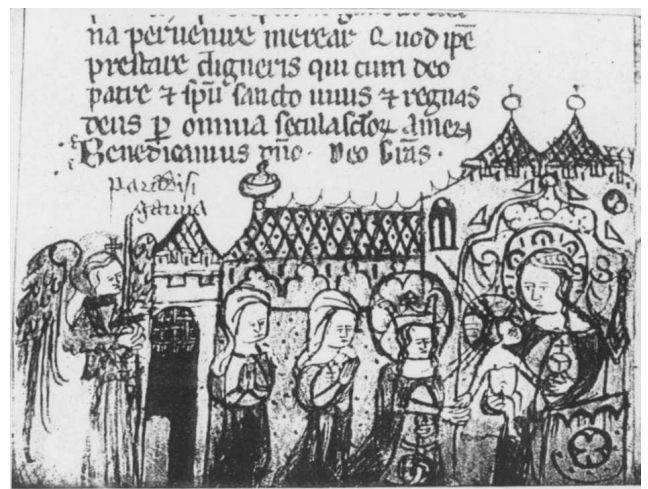 na peruenire merear Quod ip̄e
prestare digneris qui cum deo
patre ⁊ sp̄u sancto uiuis ⁊ regnas
deus p̄ omnia secula sc̄lor̄ amen
Benedicamus dn̄o. Deo grās.
paradisi
ianua